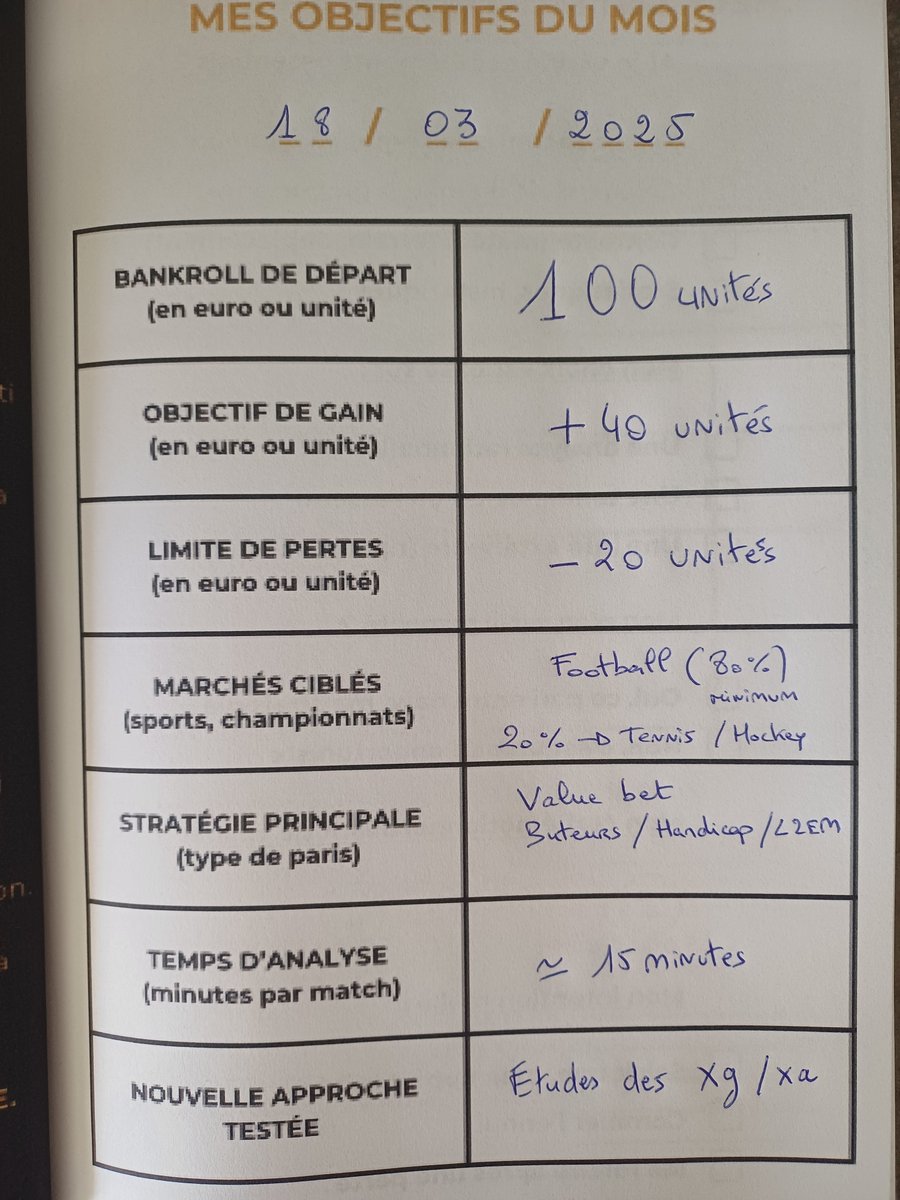 MES OBJECTIFS DU MOIS
18 / 03 / 2025
BANKROLL DE DÉPART
(en euro ou unité)
100 unités
OBJECTIF DE GAIN
(en euro ou unité)
+ 40 unités
LIMITE DE PERTES
(en euro ou unité)
- 20 unités
MARCHÉS CIBLÉS
(sports, championnats)
Football (80%)
minimum
20% → Tennis / Hockey
STRATÉGIE PRINCIPALE
(type de paris)
Value bet
Buteurs / Handicap / L2EM
TEMPS D'ANALYSE
(minutes par match)
≃ 15 minutes
NOUVELLE APPROCHE
TESTÉE
Etudes des xg / xa